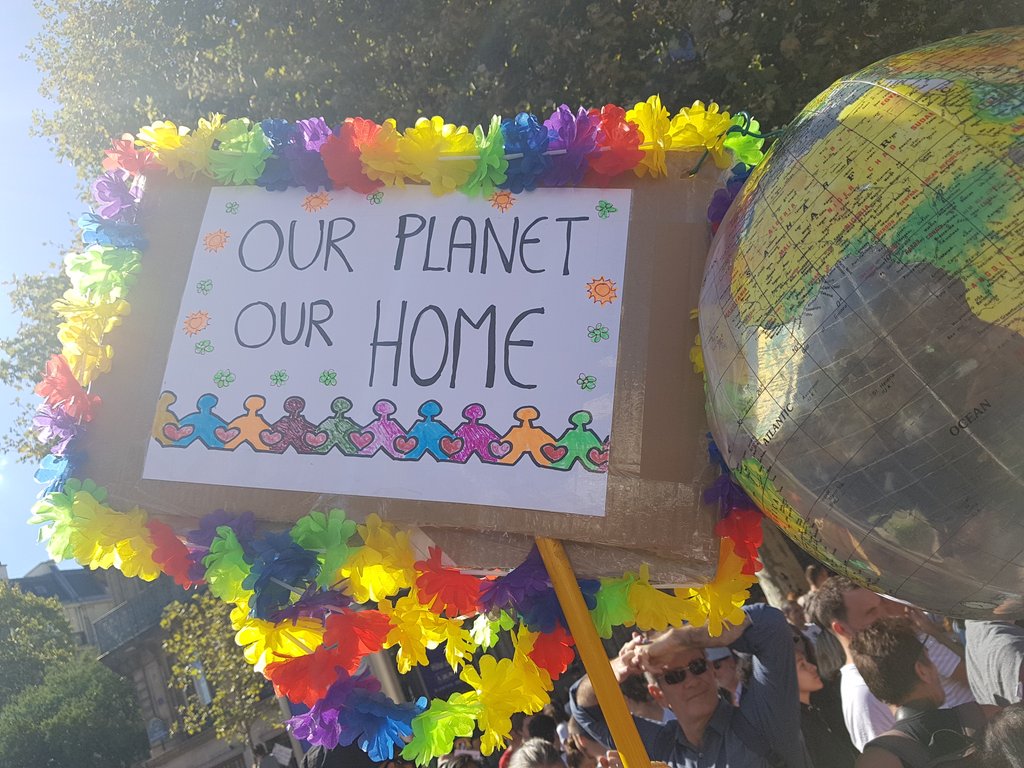 OUR PLANET
OUR HOME
ATLANTIC
OCEAN